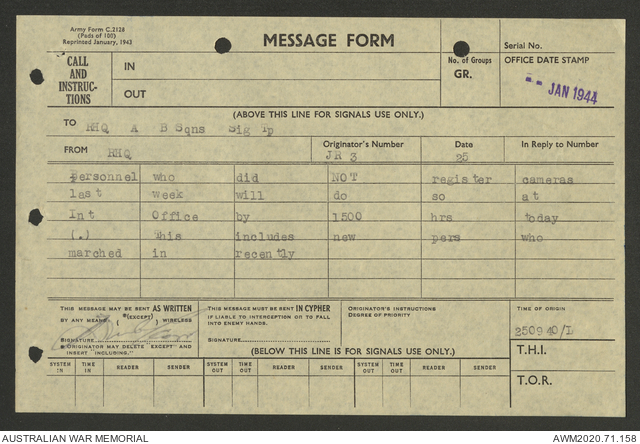 Army Form C.2128
(Pads of 100)
Reprinted January, 1943
MESSAGE FORM
Serial No.
CALL AND INSTRUC- TIONS
IN
OUT
No. of Groups
GR.
OFFICE DATE STAMP
JAN 1944
(ABOVE THIS LINE FOR SIGNALS USE ONLY.)
TO RHQ A B Sqns Sig Tp
FROM RHQ
Originator's Number JR 3
Date 25
In Reply to Number
personnel who did NOT register cameras
last week will do so at
Int Office by 1500 hrs today
(.) This includes new pers who
marched in recently
THIS MESSAGE MAY BE SENT AS WRITTEN
BY ANY MEANS (EXCEPT) WIRELESS
SIGNATURE
ORIGINATOR MAY DELETE "EXCEPT" AND
INSERT "INCLUDING."
THIS MESSAGE MUST BE SENT IN CYPHER
IF LIABLE TO INTERCEPTION OR TO FALL
INTO ENEMY HANDS.
SIGNATURE
ORIGINATOR'S INSTRUCTIONS
DEGREE OF PRIORITY
TIME OF ORIGIN
250940/L
(BELOW THIS LINE IS FOR SIGNALS USE ONLY.)
T.H.I.
T.O.R.
SYSTEM IN TIME IN READER SENDER SYSTEM OUT TIME OUT READER SENDER SYSTEM OUT TIME OUT READER SENDER
AUSTRALIAN WAR MEMORIAL
AWM2020.71.158